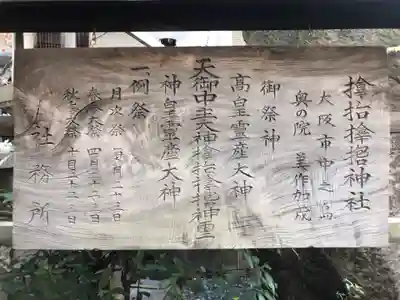 神社
大阪市中之島
奥の院 美作加茂
御祭神
高皇霊産大神
天御中主大神
神皇霊産大神
一、例祭
月次祭 二十三日
大祭 四月二十二日
大祭 十月二十二日
社務所